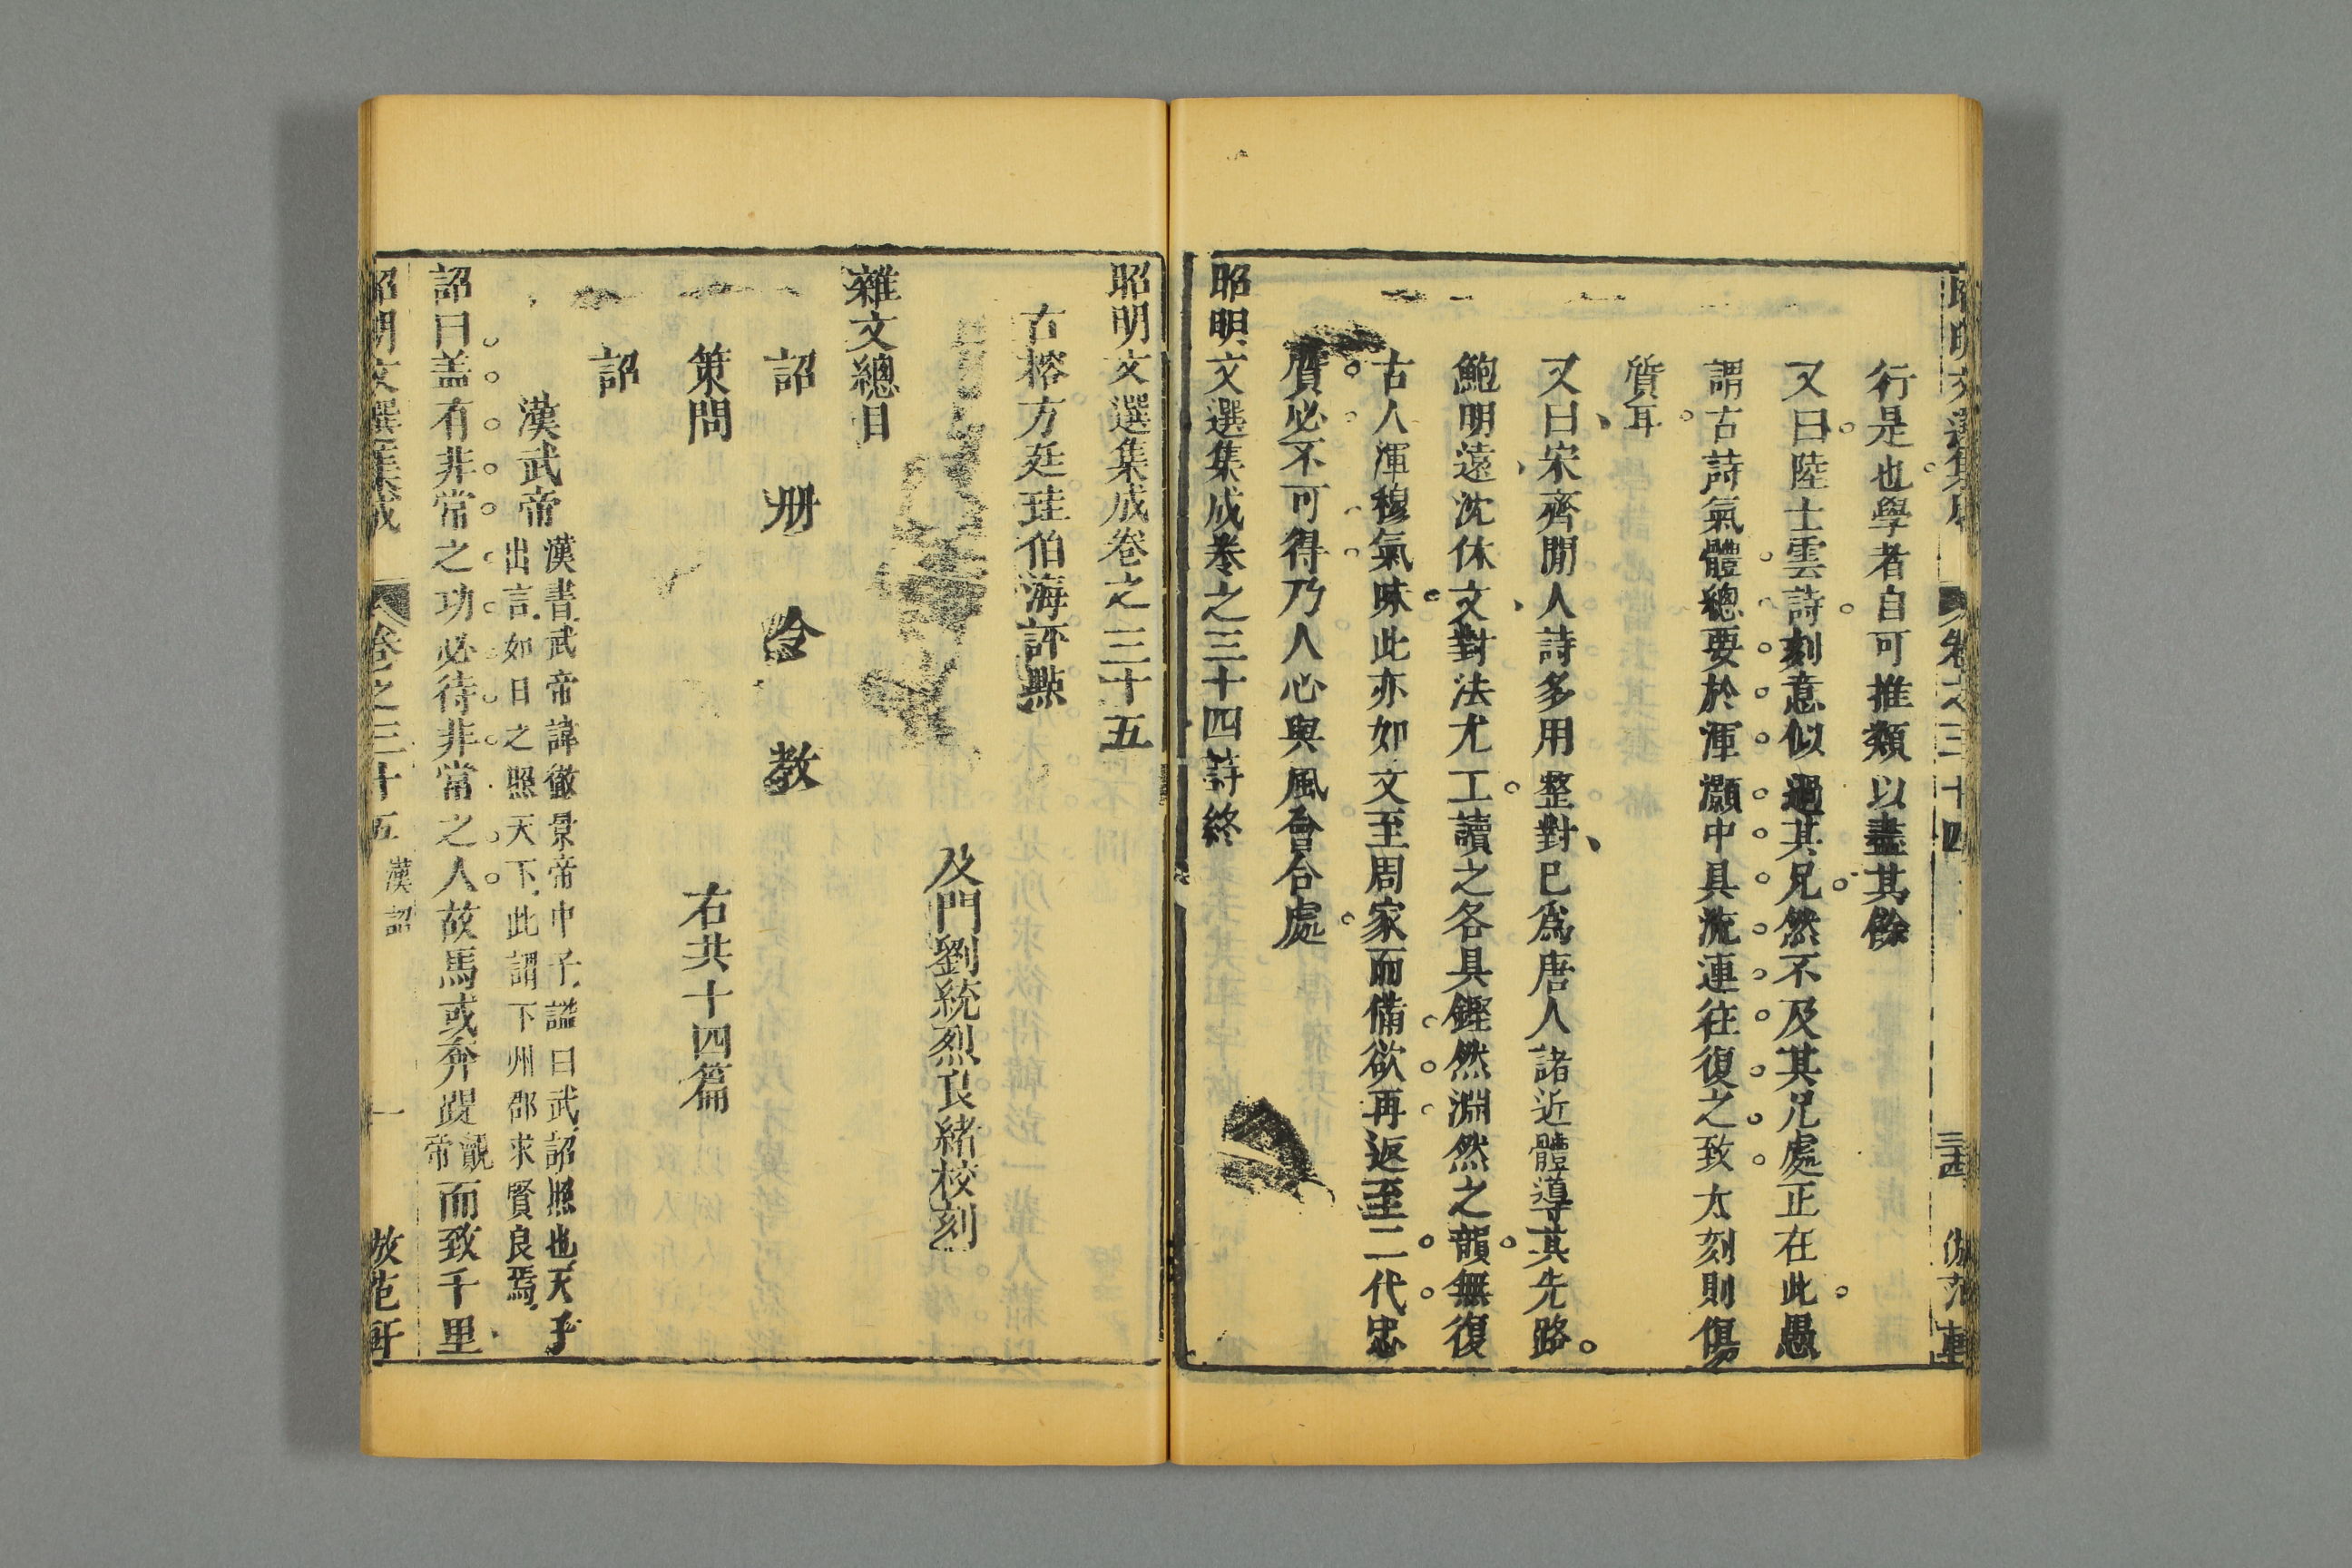 行是也學者自可推類以盡其餘
又曰陸士雲詩刻意似過其兄然不及其兄處正在此愚
謂古詩氣體總要於渾灝中具流連往復之致太刻則傷
質耳
又曰宋齊閒人詩多用整對已為唐人諸近體導其先路
鮑明遠沈休文對法尤工讀之各具鏗然淵然之韻無復
古人渾穆氣味此亦如文至周家而備欲再返至二代忠
質必不可得乃人心與風會合處
昭明文選集成卷之三十四詩終
昭明文選集成卷之三十五
古榕方廷珪伯海評點
及門劉統烈良緒校刻
雜文總目
詔 册 令 教
策問 右共十四篇
詔
漢武帝
漢書武帝諱徹景帝中子諡曰武詔照也天子
出言如日之照天下此謂下州郡求賢良焉
詔曰盖有非常之功必待非常之人故馬或奔踶而致千里
昭明文選集成 卷之三十五 漢詔 一 倣范軒